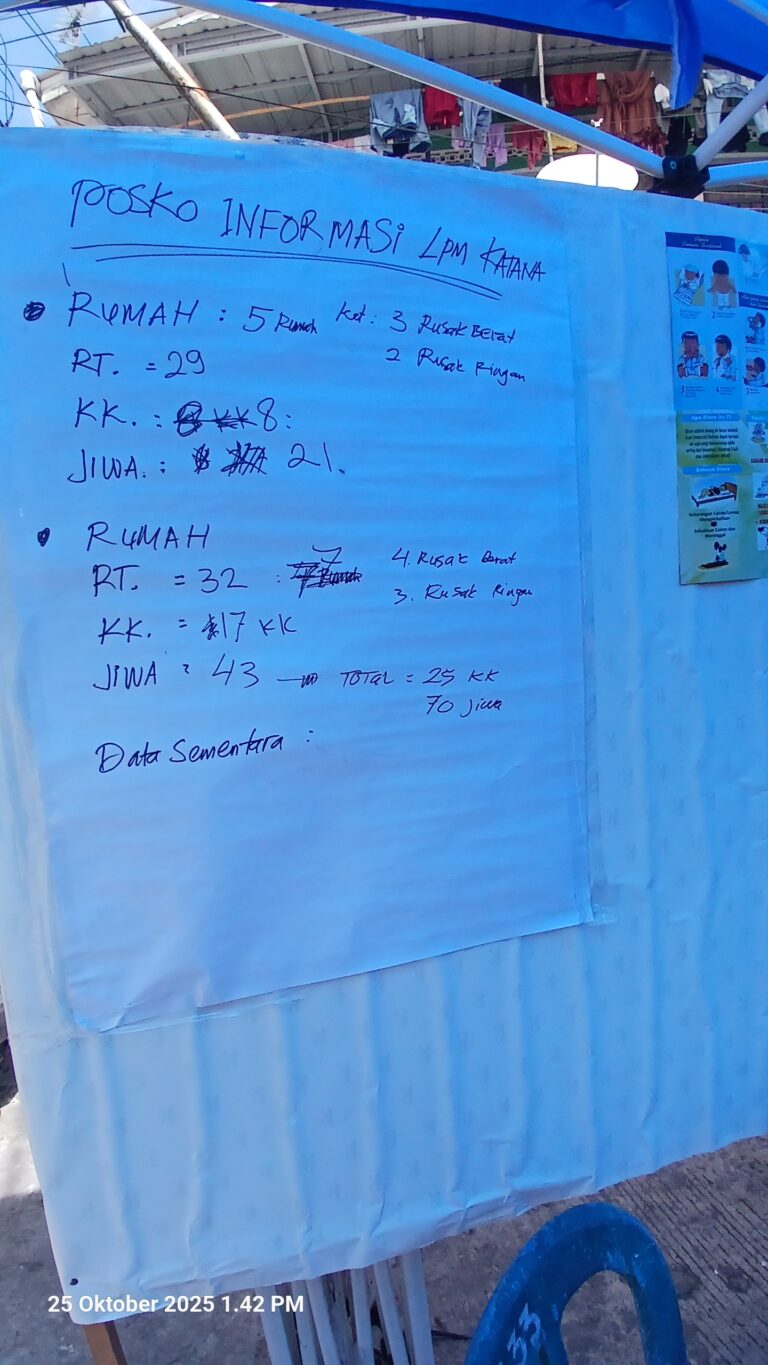 POSKO INFORMASI LPM KATANA
RUMAH : 5 Rumah Ket : 3 Rusak BErat
2 Rusak Ringan
RT. = 29
KK. : 8 :
JIWA. : 21.
RUMAH
RT. = 32 : 7
4. Rusak Berat
3. Rusak Ringan
KK. = 17 KK
JIWA : 43 → TOTAL = 25 KK
70 Jiwa
Data Sementara :
25 Oktober 2025 1.42 PM
33